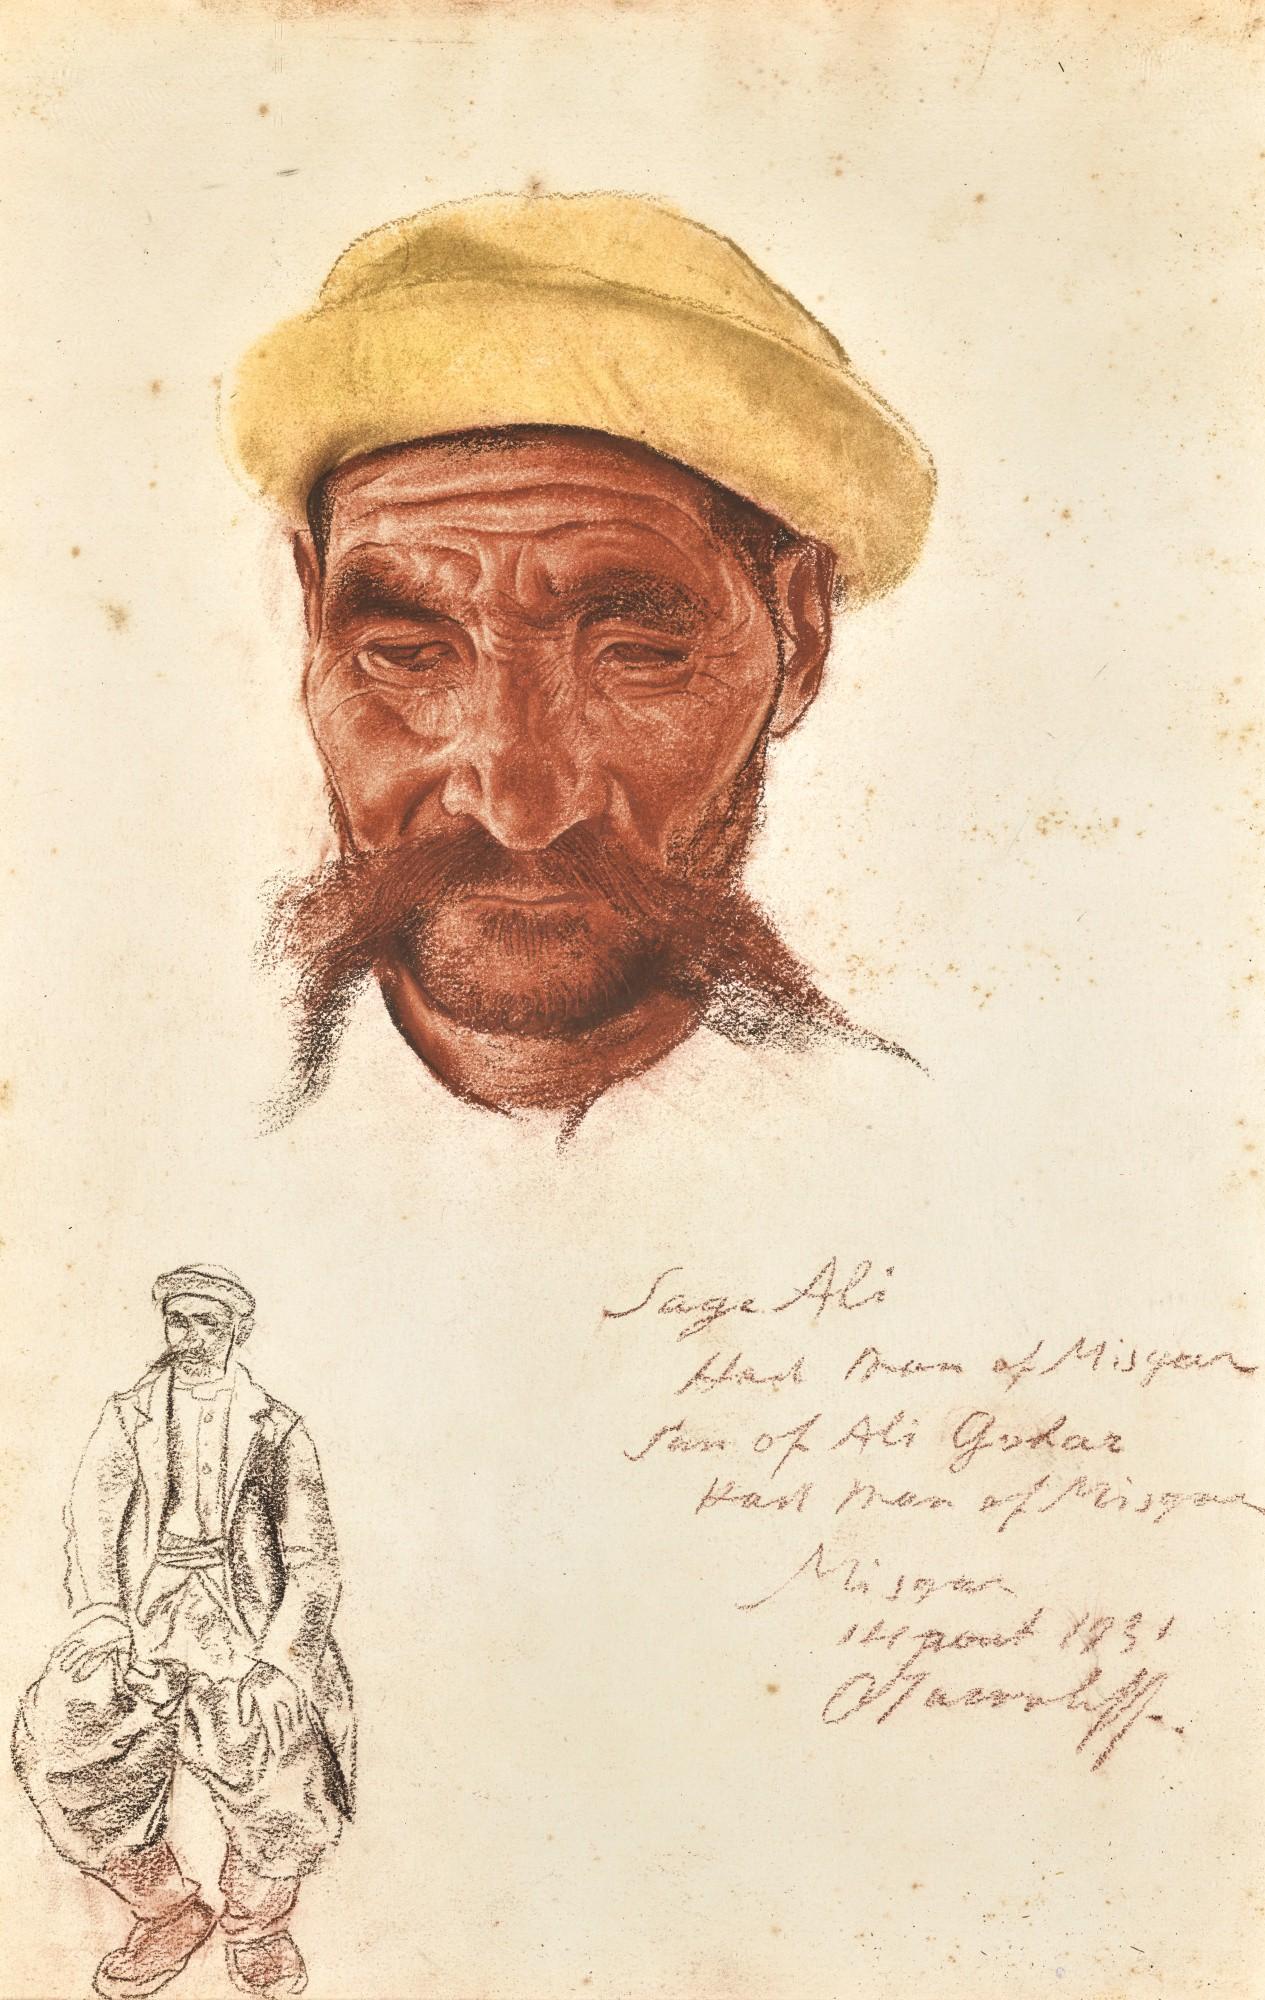 Sage Ali
Had man of Misgar
Sun of Ali Gohar
Had man of Misgar
Misgar
14 aout 1931
AJacovleff.